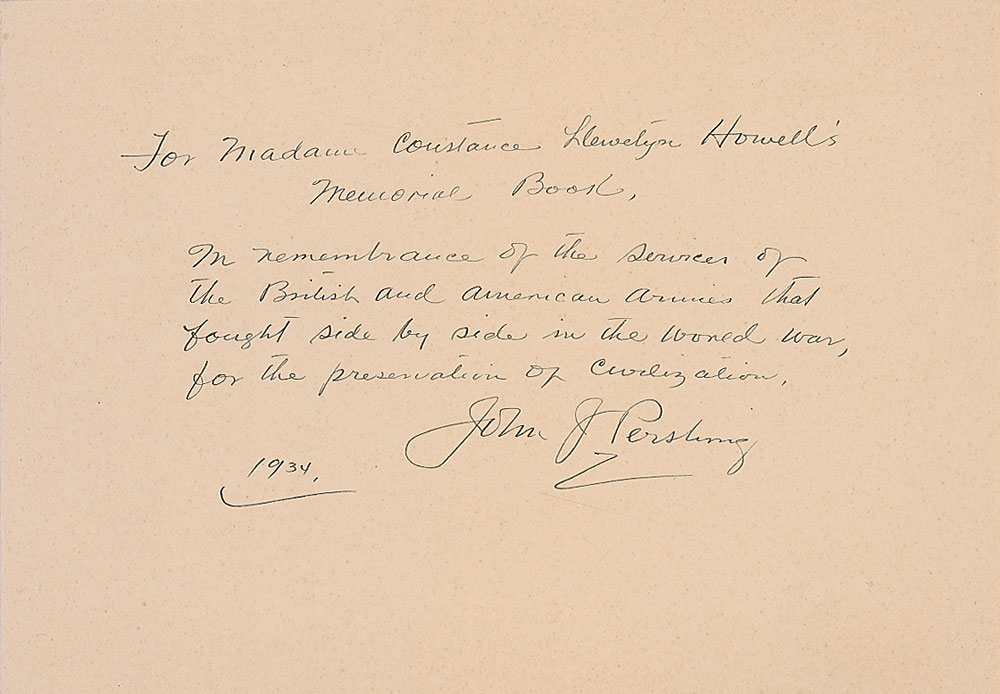 For Madame Constance Llewelyn Howell's
Memorial Book,
In remembrance of the services of
the British and American Armies that
fought side by side in the World War,
for the preservation of Civilization.
John J Pershing
1934.